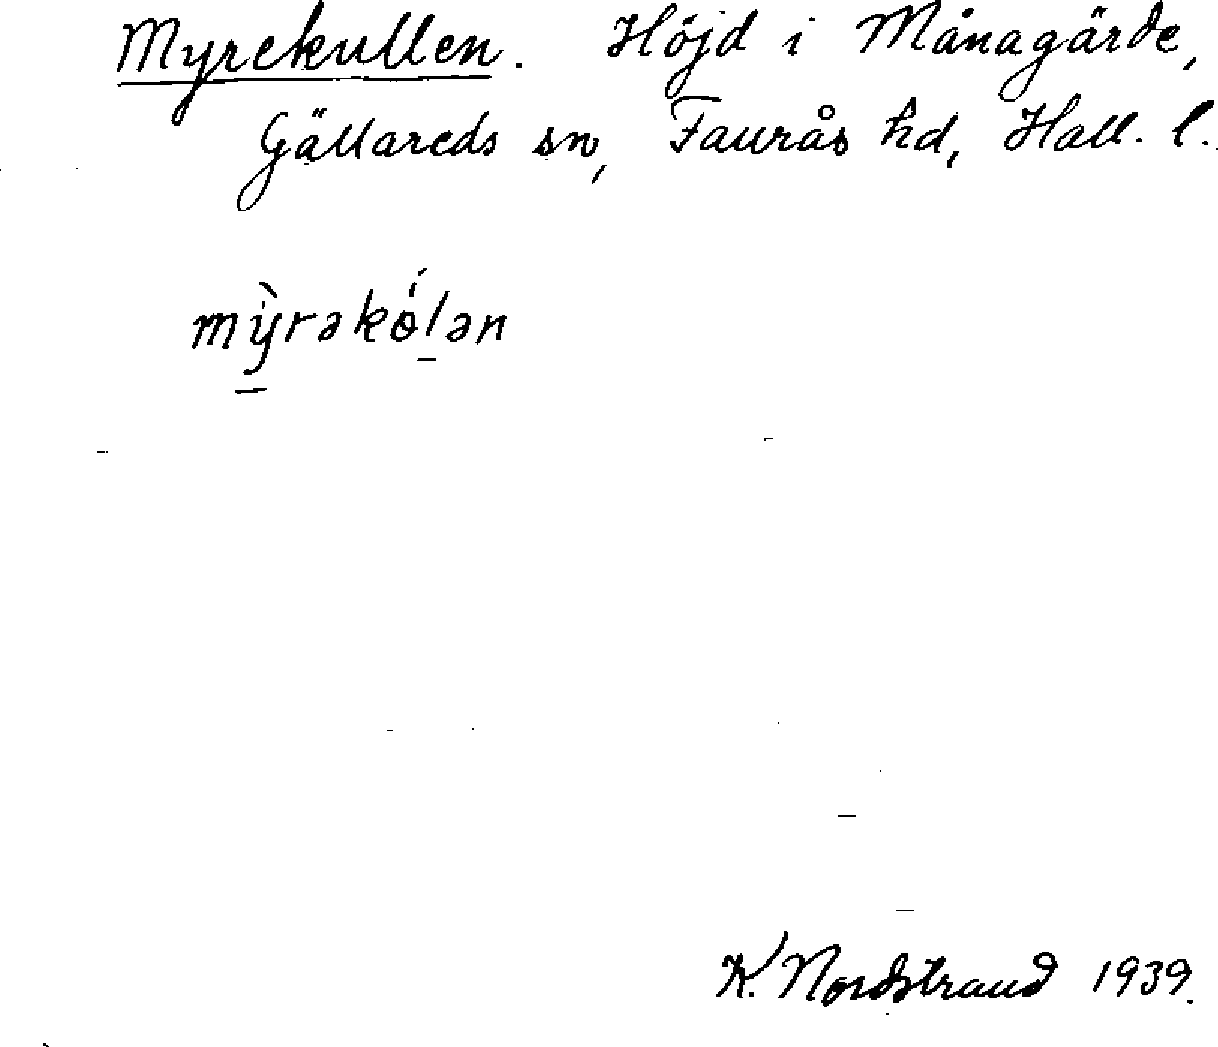 Myrekullen. Höjd i Månagärde,
Gällareds sn, Faurås hd, Hall. l.
mỳrəkɵ́lən
K. Nordstrand 1939.